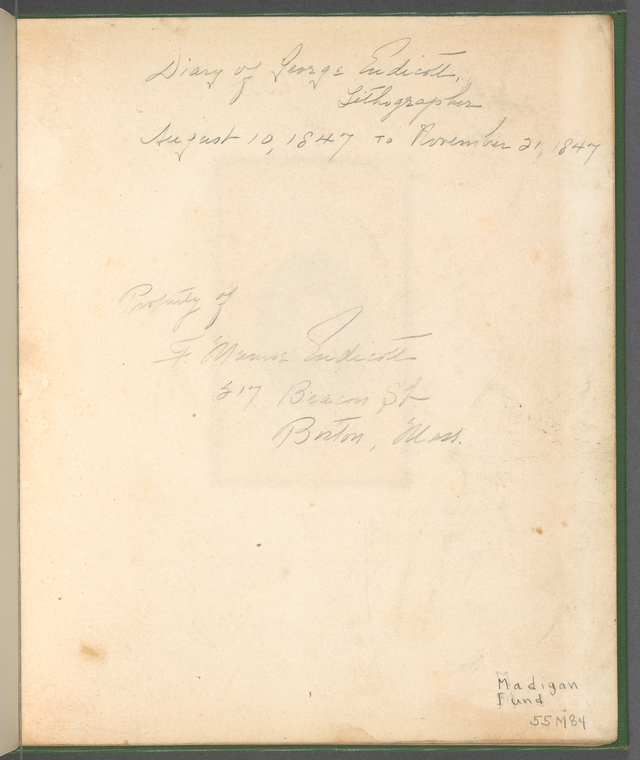 Diary of George Endicott,
Lithographer
August 10, 1847 to November 21, 1847
Property of
F. Munroe Endicott
517 Beacon St
Boston, Mass.
Madigan
Fund
55M84